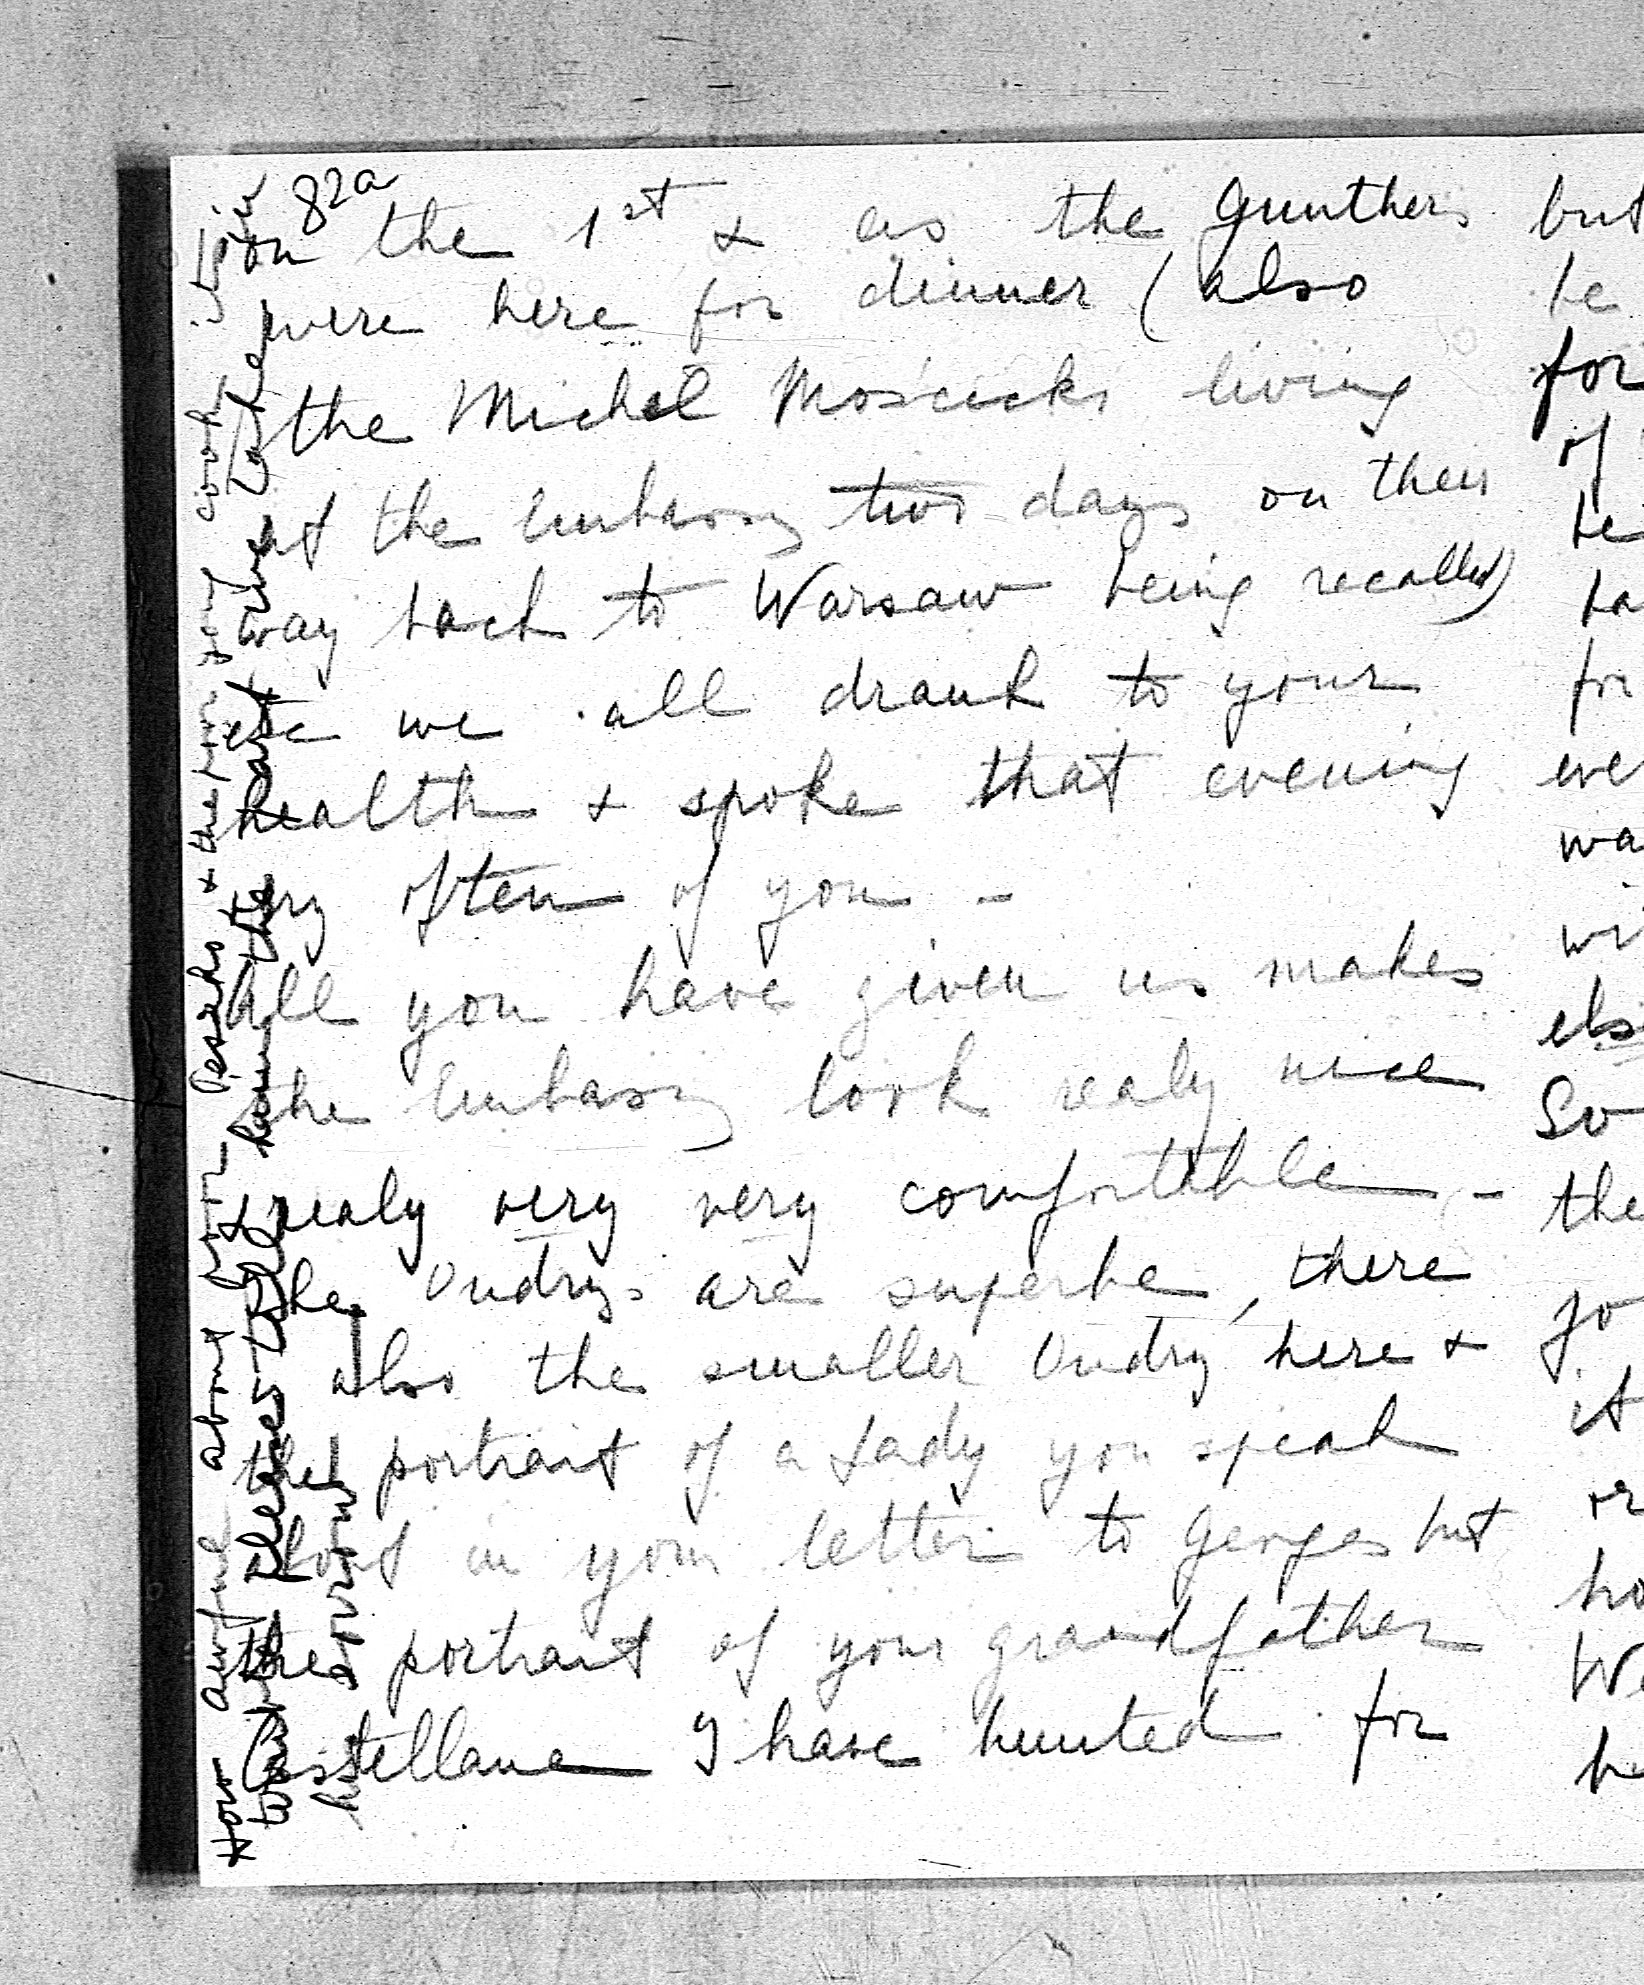 82a
on the 1st & as the Gunthers
were here for dinner (also
the Michel Mościckis living
at the Embassy two days on their
way back to Warsaw being recalled)
etc we all drank to your
health & spoke that evening
very often of you –
All you have given us makes
the Embassy look realy nice
& realy very very comfortable –
The Oudrys are superbe, there
also the smaller Oudry here &
the portrait of a Lady you speak
about in your letter to Georges but
the portrait of your grandfather
Castellane I have hunted for
but
be
for
of
be
ba
for
eve
wa
wi
els
So
the
yo
it
or
ho
We
be
How awful about poor Peszko & the poor young cook, it is